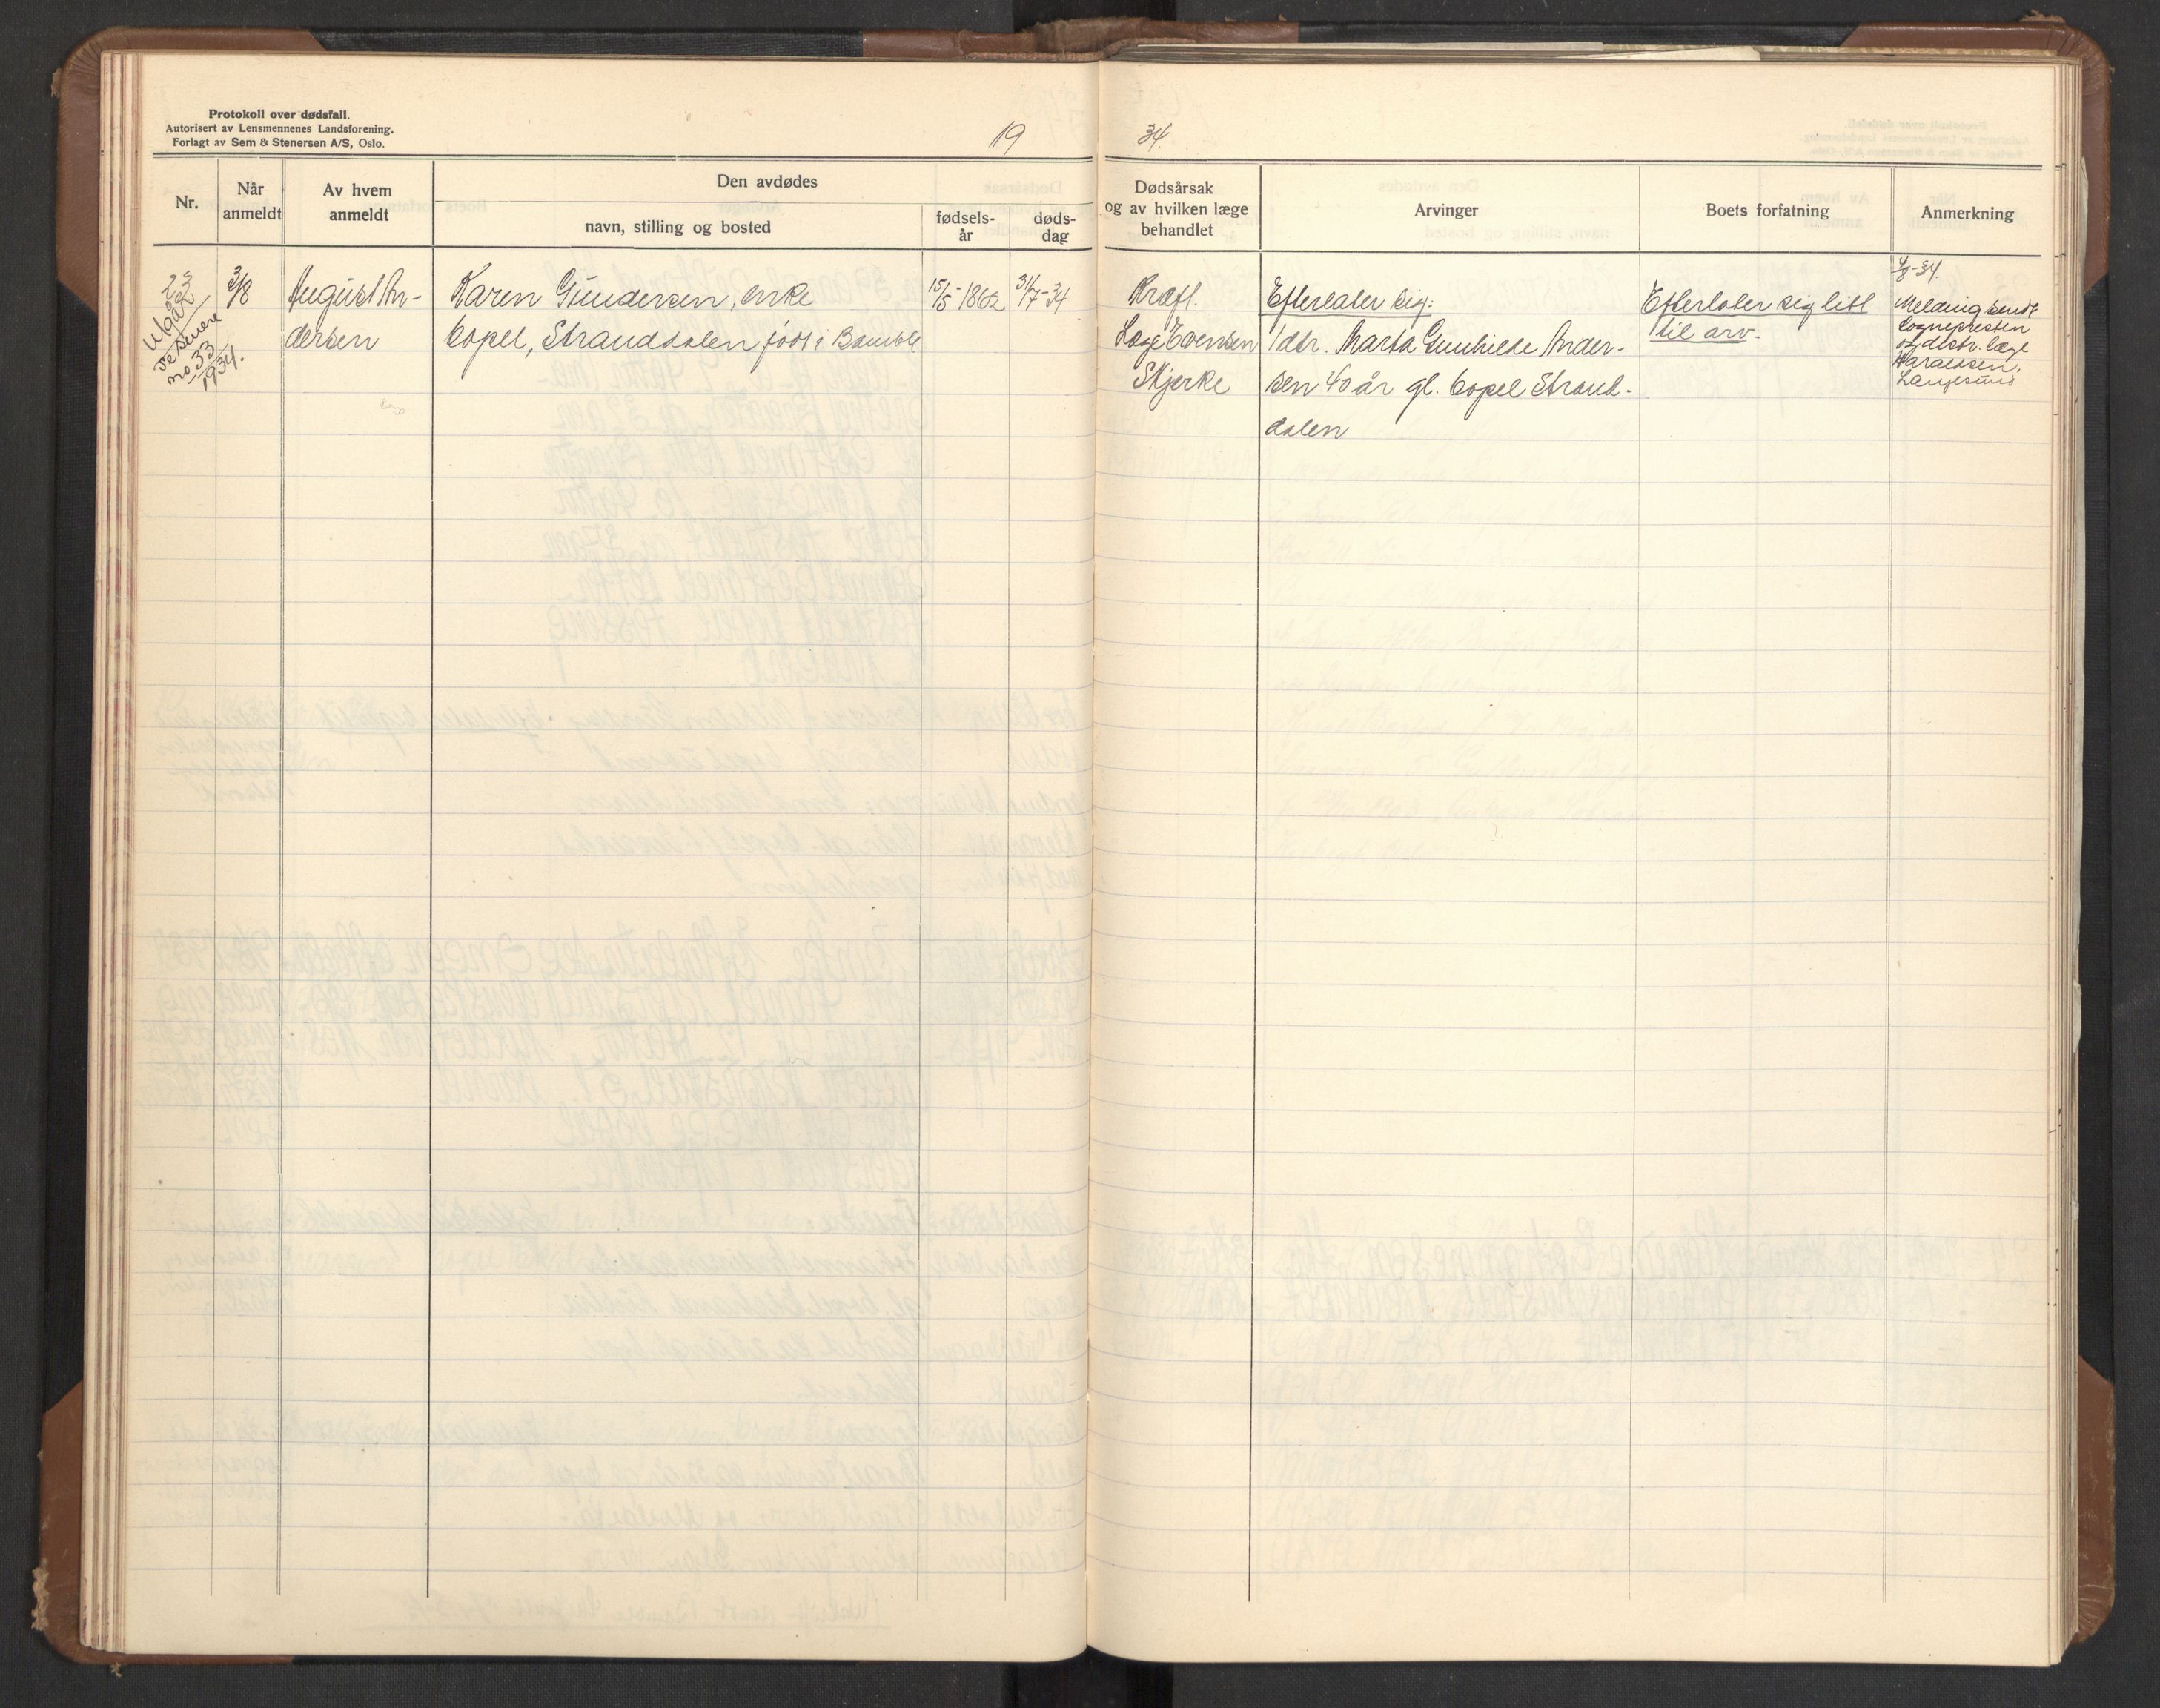 Protokoll over dødsfall.
Autorisert av Lensmennenes Landsforening.
Forlagt av Sem & Stenersen A/S, Oslo.
19
34.
Nr.
Når
anmeldt
Av hvem
anmeldt
Den avdødes
navn, stilling og bosted
fødsels-
år
døds-
dag
Dødsårsak
og av hvilken læge
behandlet
Arvinger
Boets forfatning
Anmerkning
23
Utgår
se senere
no 33
1934.
3/8
August An-
dersen
Karen Gundersen, enke
bopel, Stranddalen født i Bamble
15/5-1862
31/7-34
Kræft.
Læge Evensen
Skjerke
Efterlater sig:
1 dtr. Marta Gunhilde Ander-
sen 40 år gl. bopel Strand-
dalen
Efterlater sig litt
til arv.
4/8-34.
Melding sendt
sognepresten
og distr. læge
Haraldsen,
Langesund